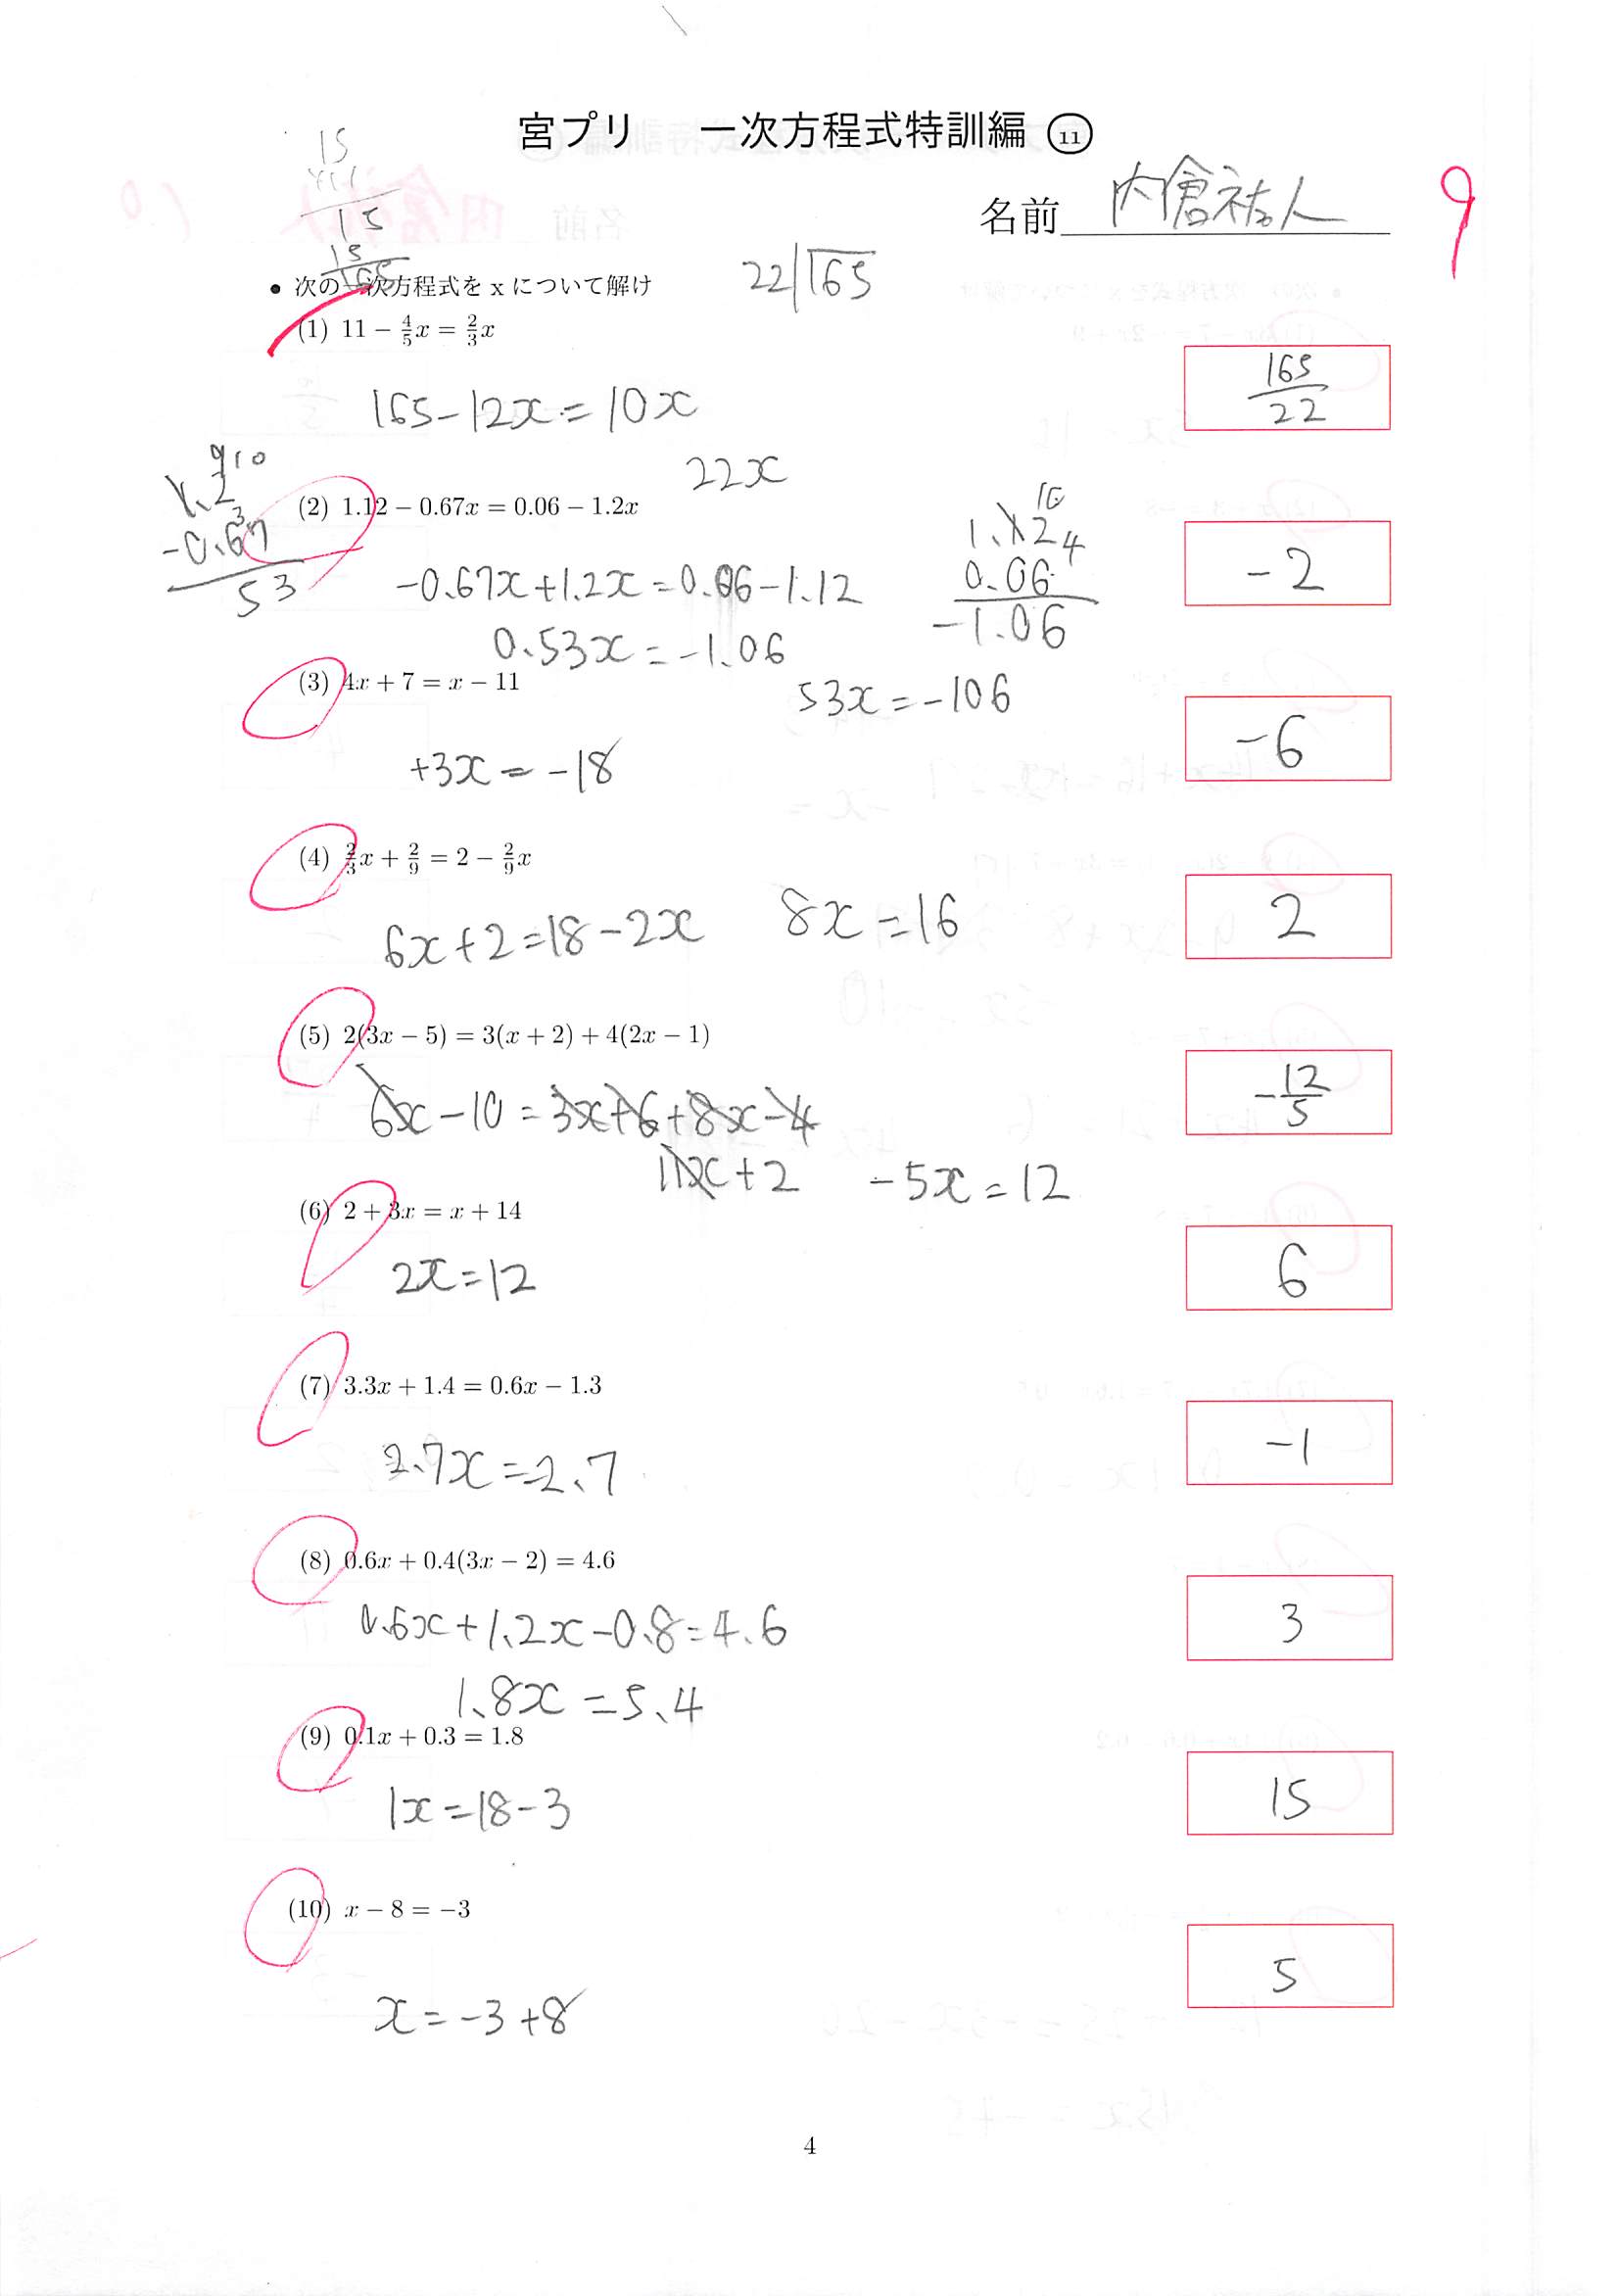 宮プリ 一次方程式特訓編 ⑪
名前 内倉祐人
9
15
15
15
165
22)165
• 次の一次方程式を x について解け
(1) 11 − 4/5 x = 2/3 x
165-12x=10x
22x
165/22
(2) 1.12 − 0.67x = 0.06 − 1.2x
9 10
1.2
-0.67
53
-0.67x+1.2x=0.06-1.12
0.53x=-1.06
53x=-106
10
1.124
0.06
-1.06
-2
(3) 4x + 7 = x − 11
+3x=-18
-6
(4) 2/3 x + 2/9 = 2 − 2/9 x
6x+2=18-2x 8x=16
2
(5) 2(3x − 5) = 3(x + 2) + 4(2x − 1)
6x-10=3x+6+8x-4
11x+2 -5x=12
-12/5
(6) 2 + 3x = x + 14
2x=12
6
(7) 3.3x + 1.4 = 0.6x − 1.3
2.7x=-2.7
-1
(8) 0.6x + 0.4(3x − 2) = 4.6
0.6x+1.2x-0.8=4.6
1.8x=5.4
3
(9) 0.1x + 0.3 = 1.8
1x=18-3
15
(10) x − 8 = −3
x=-3+8
5
4